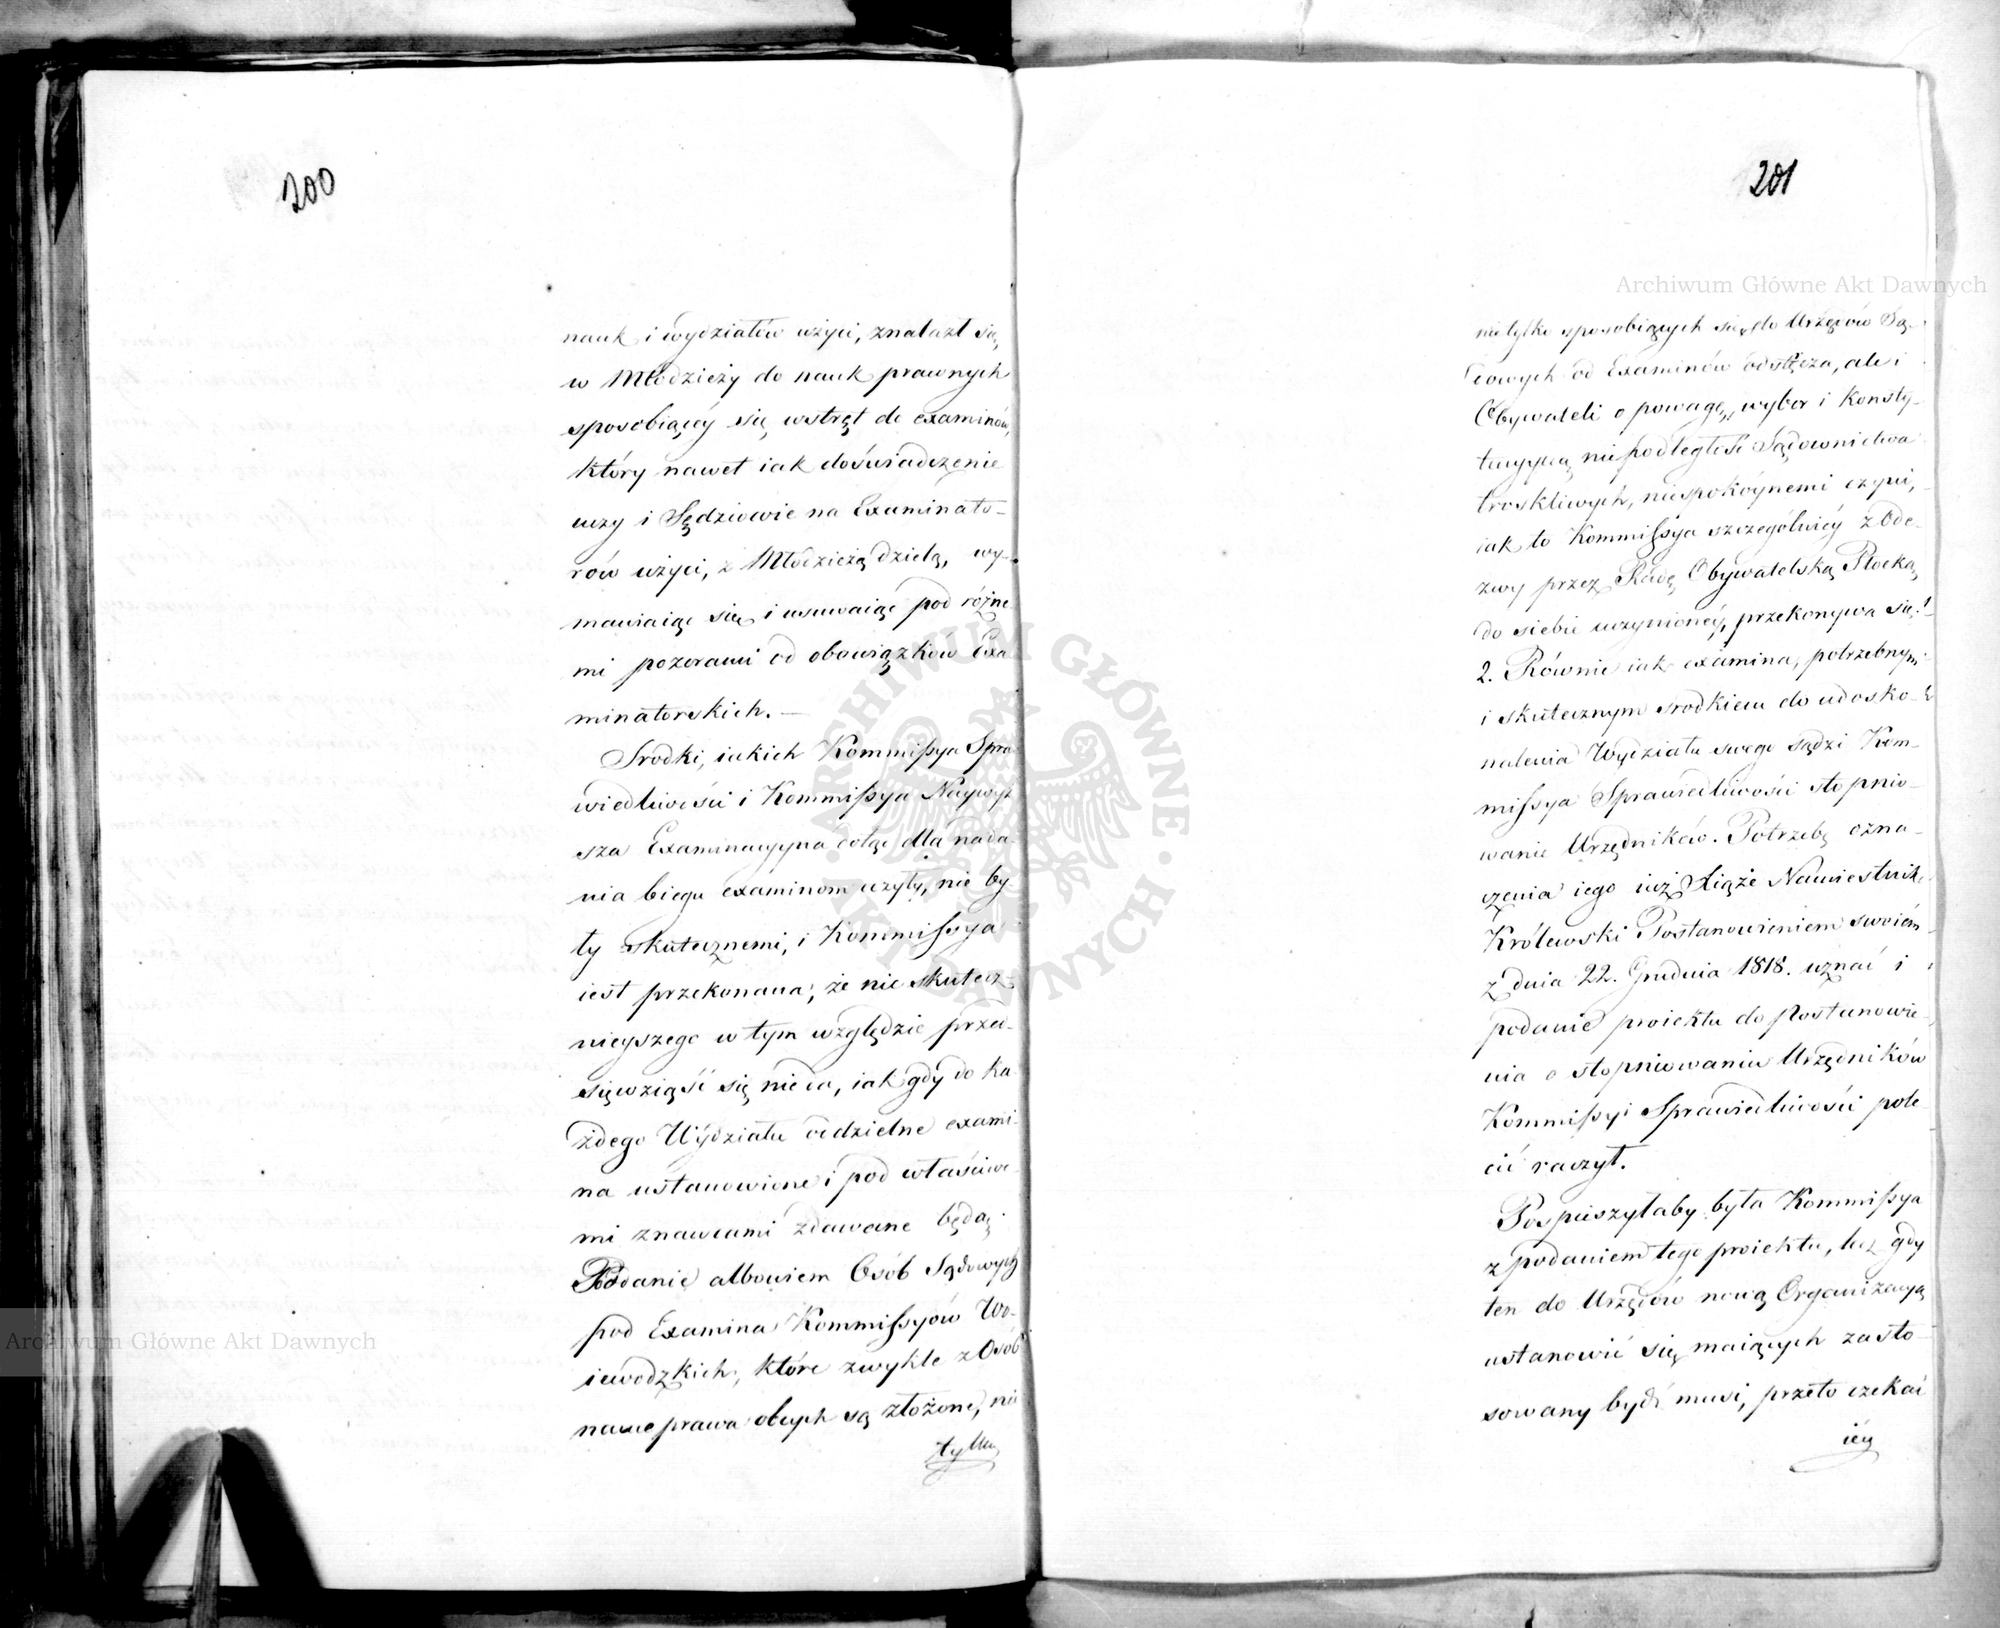 200
nauk i wydziałów użyci, znalazł się
w Młodzieży do nauk prawnych
sposobiącéy się wstręt do examinów,
który nawet iak doświadczenie
uczy i Sędziowie na Examinato-
rów użyci, z Młodzieżą dzielą, wy-
mawiaiąc się i usuwaiąc pod różne-
mi pozorami od obowiązków Exa-
minatorskich. —
Srodki, iakich Kommissya Spra-
wiedliwości i Kommissya Naywyż-
sza Examinacyyna dotąd dla nada-
nia biegu examinom użyły, nie by-
ły skutecznemi, i Kommissya
iest przekonana, że nic skutecz-
nieyszego w tym względzie przed-
sięwziąść się nie da, iak gdy do ka-
żdego Wydziału oddzielne exami-
na ustanowione i pod właściwe-
mi znawcami zdawane będą.
Poddanie albowiem Osób Sądowych
pod Examina Kommissyów Wo-
iewodzkich, które zwykle z Osób
nauce prawa obcych są złożone, nie
tylko
201
nietylko sposobiących się do Urzędów Są-
dowych od Examinów odstręcza, ale i
Obywateli o powagę, wybor i Konsty-
tucyyną niepodległość Sądownictwa
troskliwych, niespokoynemi czyni,
iak to Kommissya szczególniéy z Ode-
zwy przez Radę Obywatelską Płocką
do siebie uczynionéy, przekonywa się.
2. Równie iak examina, potrzebnym
i skutecznym srodkiem do udosko-
nalenia Wydziału swego sądzi Kom-
missya Sprawiedliwości stopnio-
wanie Urzędników. Potrzebę ozna-
czenia iego iuż Xiąże Namiestnik
Królewski Postanowieniem swoiém
z dnia 22. Grudnia 1818. uznać i
podanie proiektu do Postanowie-
nia o stopniowaniu Urzędników
Kommissyi Sprawiedliwości pole-
cić raczył.
Pospieszyłaby była Kommissya
z podaniem tego proiektu, lecz gdy
ten do Urzędów nową Organizacyą
ustanowić się maiących zasto-
sowany bydź musi, przeto czekać
iéy
Archiwum Główne Akt Dawnych
Archiwum Główne Akt Dawnych
ARCHIWUM GŁÓWNE AKT DAWNYCH